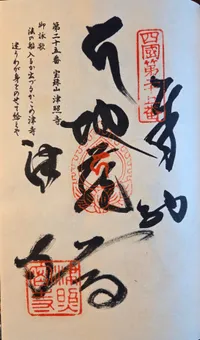 四國第廿五番
奉納
本地蔵尊
津寺
第二十五番 宝珠山 津照寺
御詠歌
法の船入るか出づるかこの津寺
迷うわが身をのせて給えや